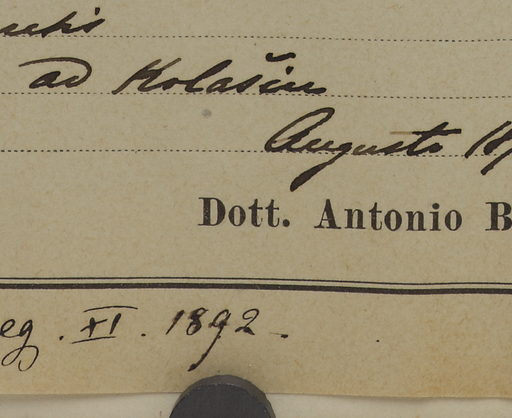 ad Kolašin
Augusto 18
Dott. Antonio B
eg. XI. 1892.